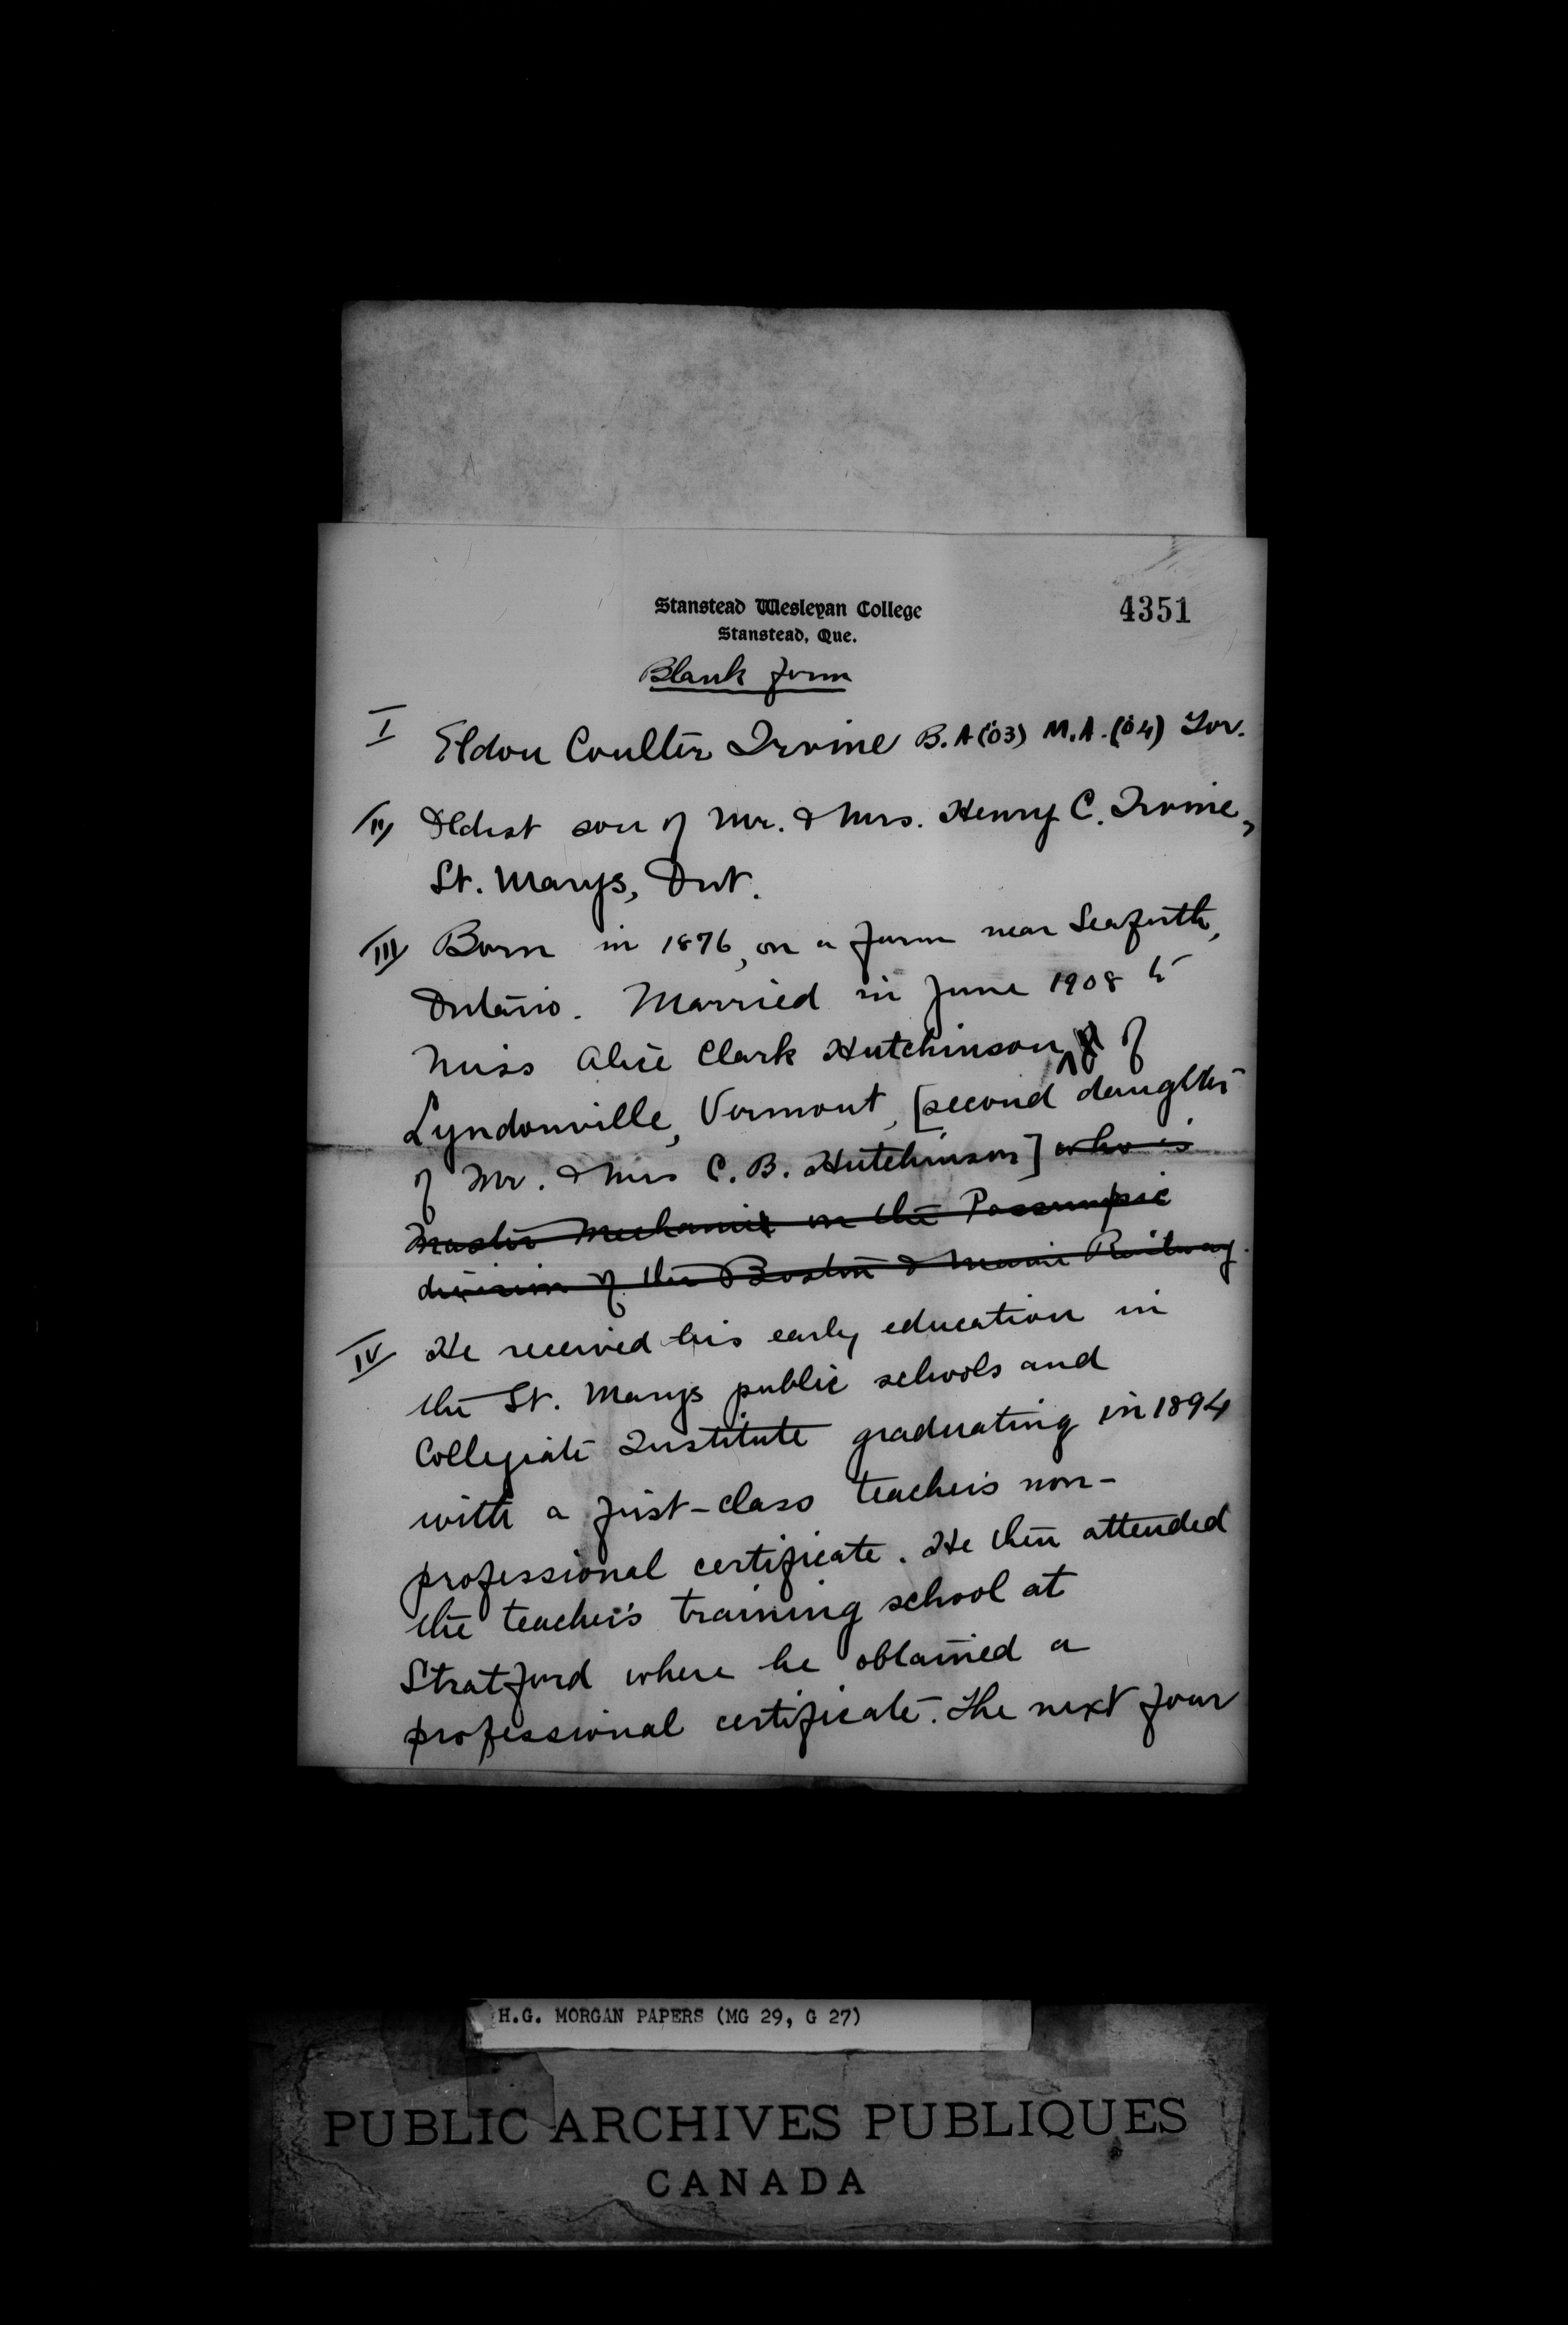 Stanstead Wesleyan College
4351
Stanstead, Que.
Blank form
I Eldon Coulter Irvine B.A ('03) M.A. ('04) Tor.
II Eldest son of Mr. & Mrs. Henry C. Irvine,
St. Marys, Ont.
III Born in 1876, on a farm near Seaforth,
Ontario. Married in June 1908 to
Miss Alice Clark Hutchinson, of
Lyndonville, Vermont, [second daughter
of Mr. & Mrs C. B. Hutchinson] who is
Master Mechanic on the Passumpsic
division of the Boston & Maine Railway.
IV He received his early education in
the St. Marys public schools and
Collegiate Institute graduating in 1894
with a first-class teacher's non-
professional certificate. He then attended
the teacher's training school at
Stratford where he obtained a
professional certificate. The next four
H.G. MORGAN PAPERS (MG 29, G 27)
PUBLIC ARCHIVES PUBLIQUES
CANADA